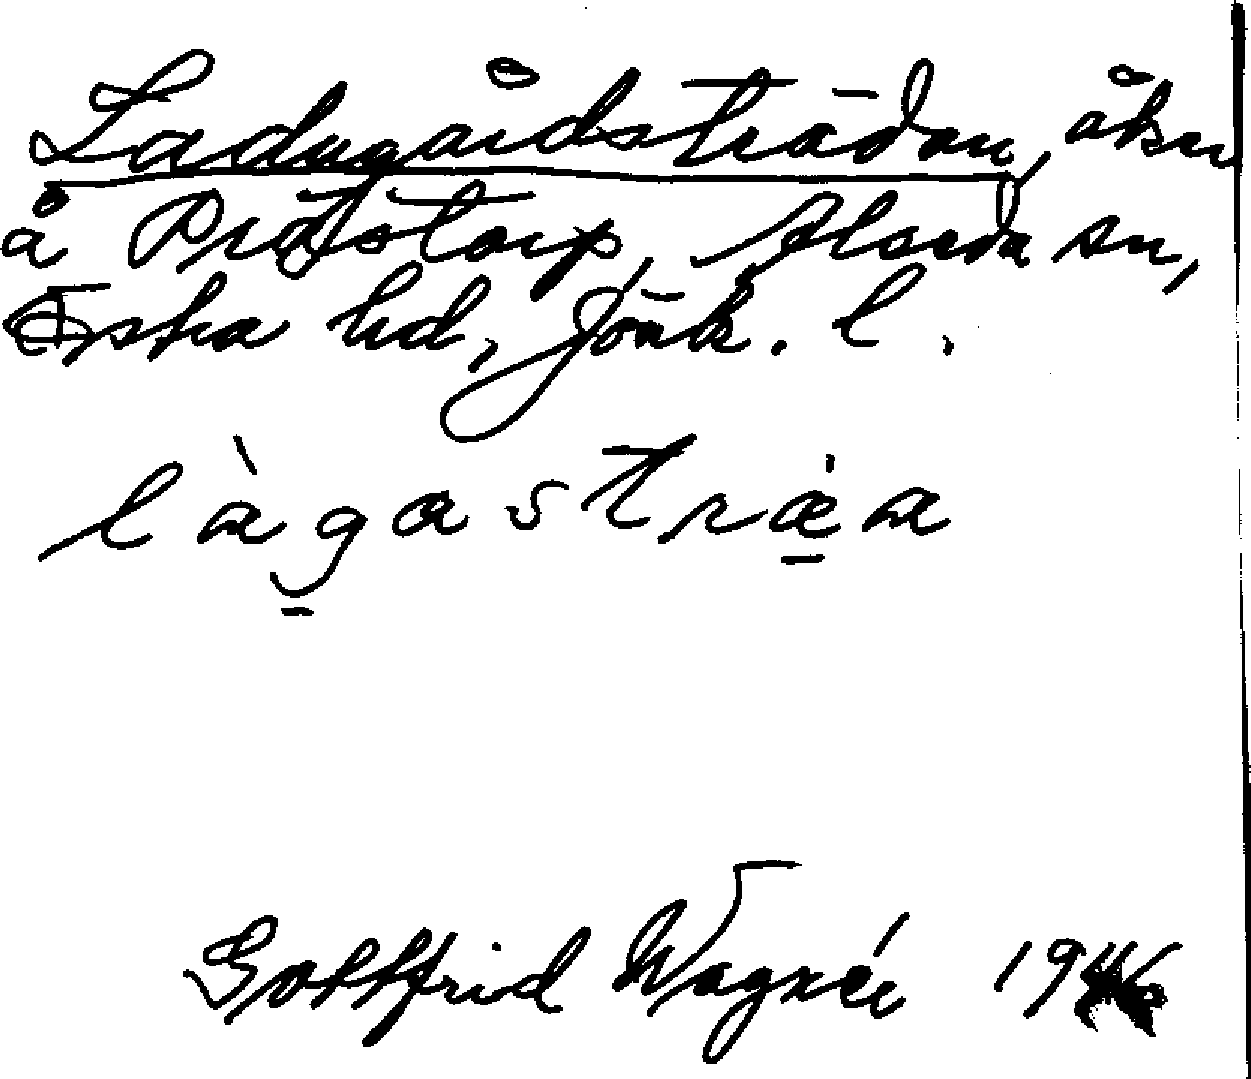 Ladugårdsträdan, åker
å Prästtorp, Alseda sn,
Östra hd, Jönk. l.
làgastræa
Gottfrid Wagnér 19